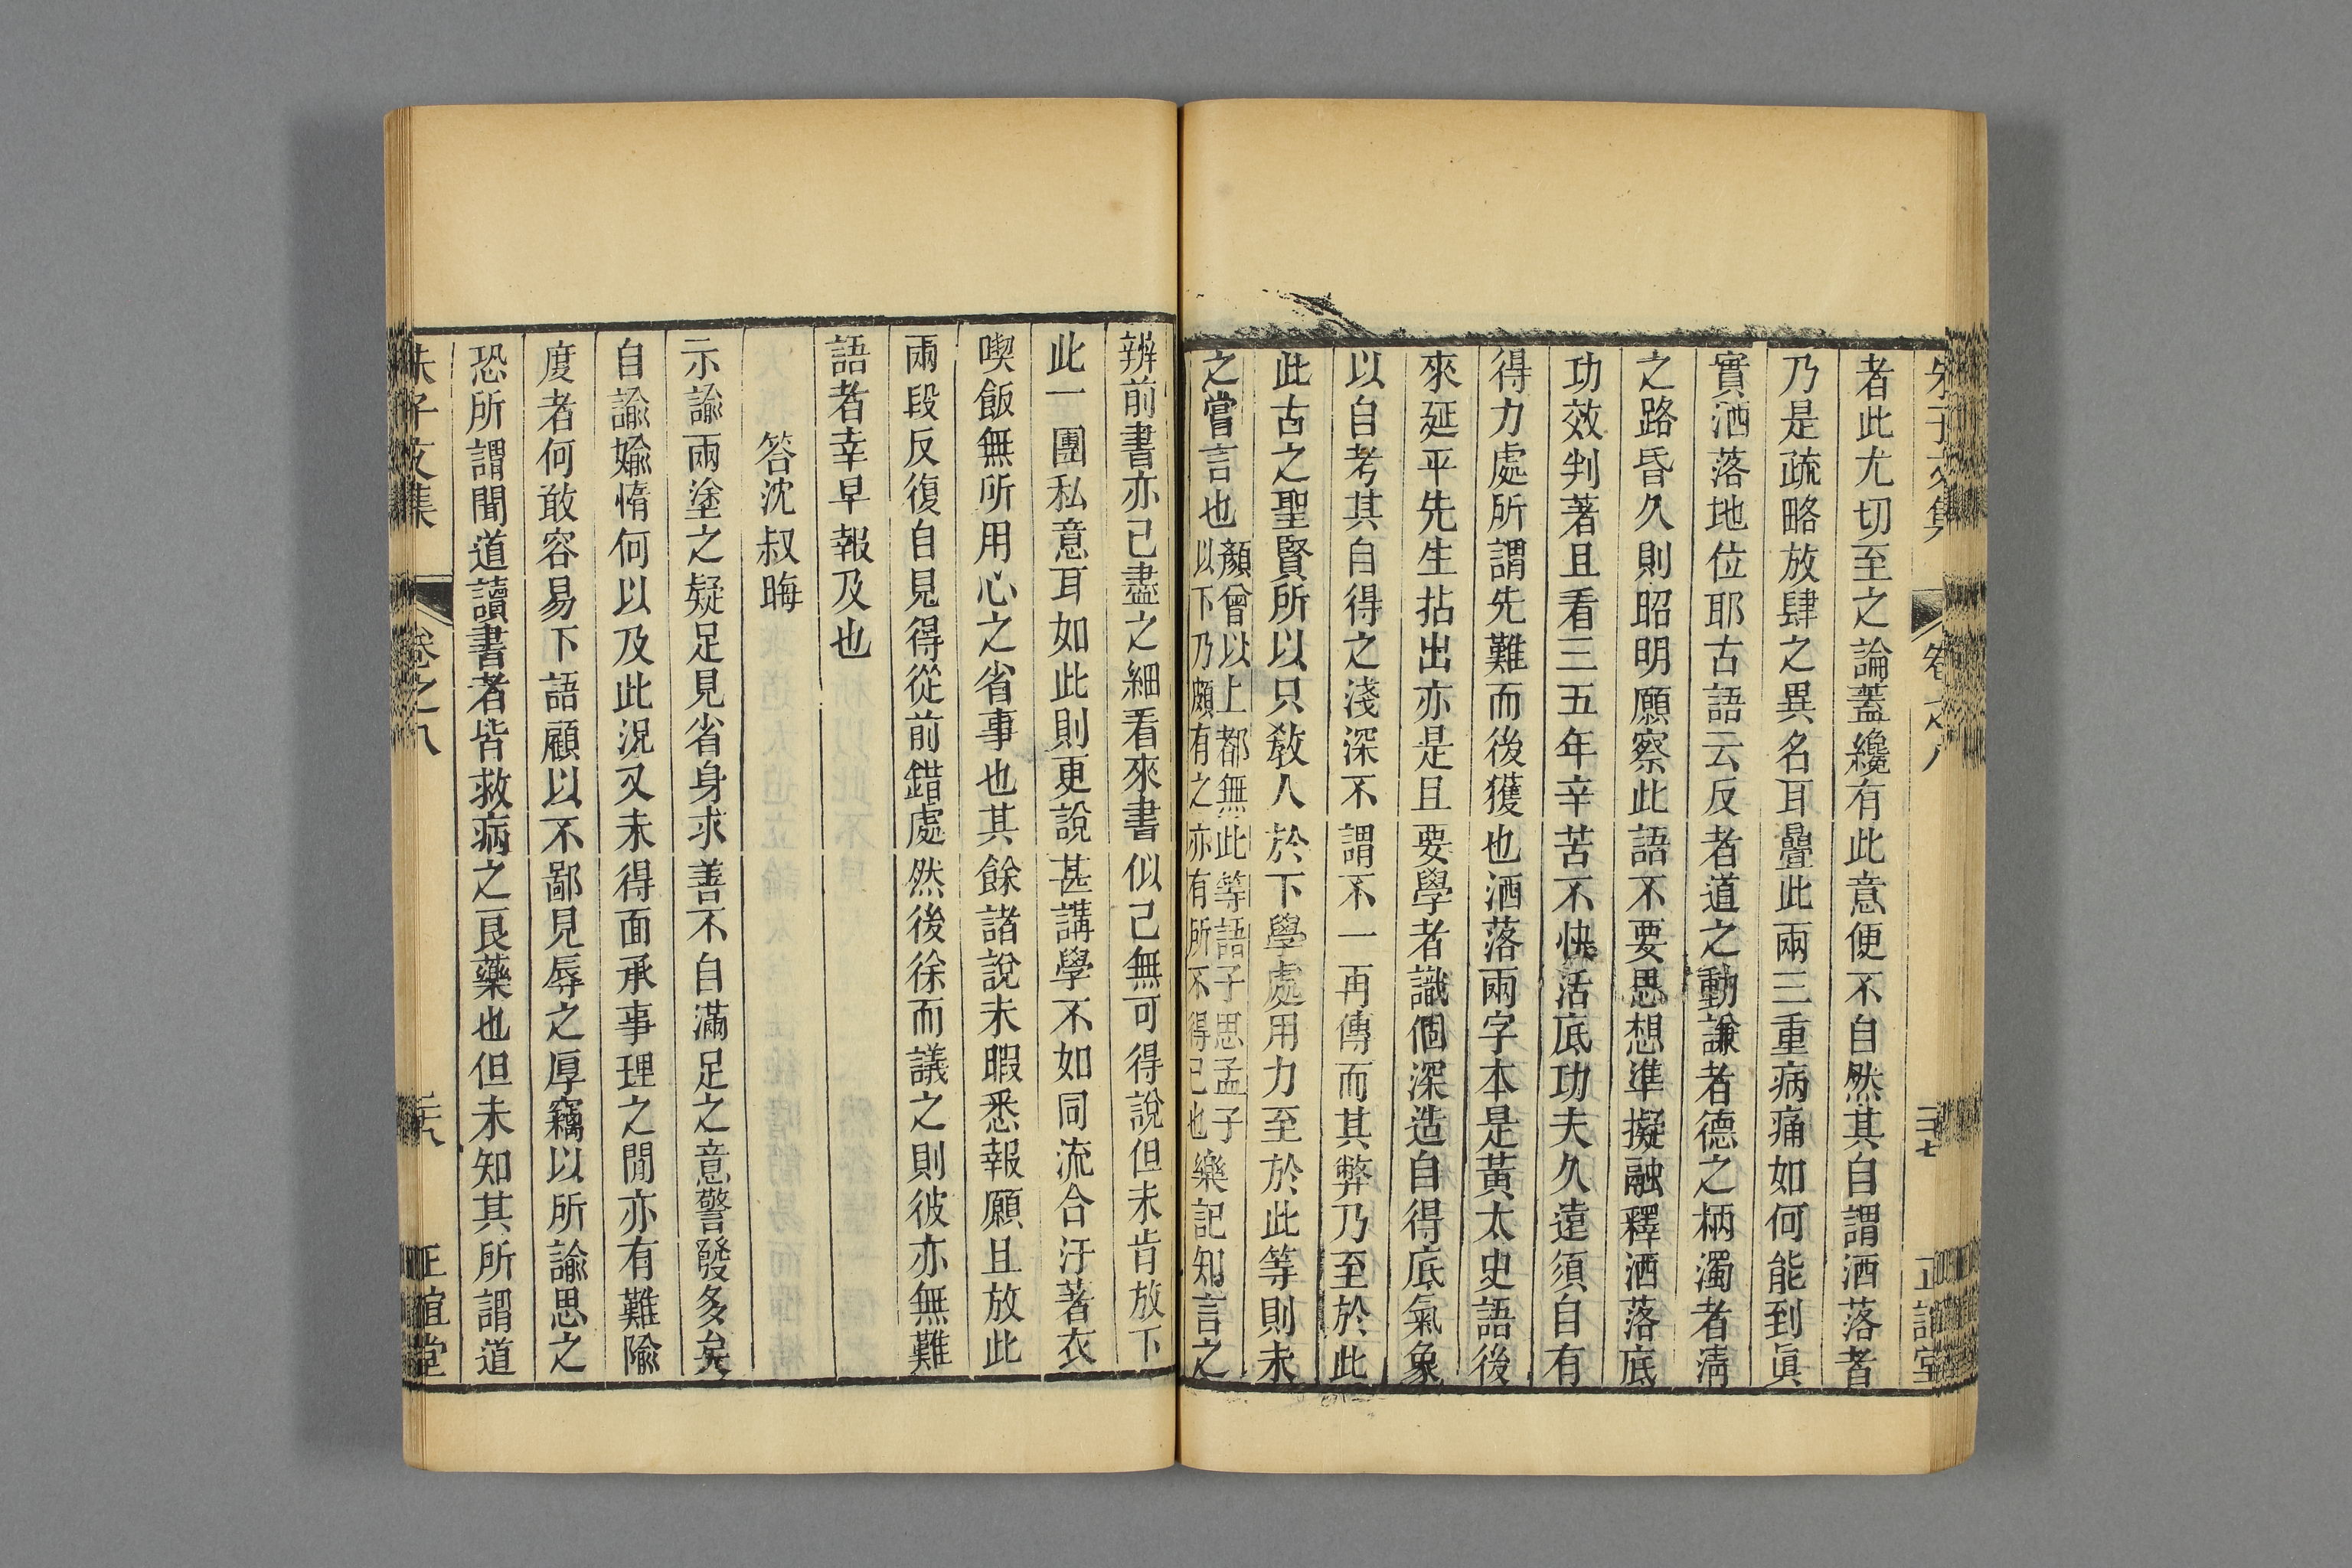 朱子文集 卷之八 三十七 正誼堂
者此尤切至之論蓋纔有此意便不自然其自謂洒落者
乃是疏略放肆之異名耳疊此兩三重病痛如何能到眞
實洒落地位耶古語云反者道之動謙者德之柄濁者淸
之路昏久則昭明願察此語不要思想準擬融釋洒落底
功效判著且看三五年辛苦不快活底功夫久遠須自有
得力處所謂先難而後獲也洒落兩字本是黃太史語後
來延平先生拈出亦是且要學者識個深造自得底氣象
以自考其自得之淺深不謂不一再傳而其弊乃至於此
此古之聖賢所以只敎人於下學處用力至於此等則未
之嘗言也
顏曾以上都無此等語子思孟子
以下乃頗有之亦有所不得已也
樂記知言之
辨前書亦已盡之細看來書似已無可得說但未肯放下
此一團私意耳如此則更說甚講學不如同流合汙著衣
喫飯無所用心之省事也其餘諸說未暇悉報願且放此
兩段反復自見得從前錯處然後徐而議之則彼亦無難
語者幸早報及也
答沈叔晦
示諭兩塗之疑足見省身求善不自滿足之意警發多矣
自諭媮惰何以及此況又未得面承事理之閒亦有難隃
度者何敢容易下語顧以不鄙見辱之厚竊以所諭思之
恐所謂聞道讀書者皆救病之良藥也但未知其所謂道
朱子文集 卷之八 三十八 正誼堂